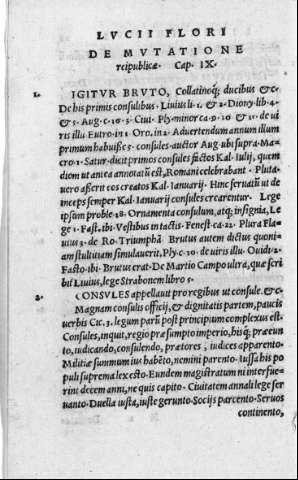 LVCII FLORI
DE MVTATIONE
reipublicæ. Cap. IX.
1. IGITVR BRVTO, Collatinoq; ducibus &c.
De his primis consulibus. Liuius li. 1. & 2. Diony. lib. 4.
& 5. Aug. c. 16. 3. Ciui. Ply. minor ca. 9. 10 & 21. de ui
ris illu. Eutro. in 1. Oro. in 2. Aduertendum annum illum
primum habuisse 5. consules. auctor Aug. ubi supra. Ma
cro. 1. Satur. dicit primos consules factos Kal. Iulij, quem
diem ut antea annotatū est, Romani celebrabant. Pluta.
uero asserit eos creatos Kal. Ianuarij. Hinc seruatū ut de
inceps semper Kal. Ianuarij consules crearentur. Lege
ipsum proble. 18. Ornamenta consulum, atq; insignia, Le
ge 1. Fast. ibi. Vestibus intactis. Fenest. ca. 22. Plura Fla
uius 3. de Ro. Triumphā. Brutus autem dictus quoni=
am stulticiam simulauerit, Ply. c. 10. de uiris illu. Ouidi. 2.
Fasto. ibi. Brutus erat. De Martio Campo ultra, quæ scri
bit Liuius, lege Strabonem libro 5.
2. CONSVLES appellauit pro regibus ut consule. &c.
Magnam consulis officij, & dignitatis partem, paucis
uerbis Cic. 3. legum parū post principium complexus est.
Consules, inquit, regio præ sumpto imperio, his q; præeun
to, iudicando, consulendo, prætores, iudices apparento.
Militiæ summum ius habēto, nemini parento. Iussa his po
puli suprema lex esto. Eundem magistratum ni interfue=
rint decem anni, ne quis capito. Ciuitatem annali lege ser
uanto. Duella iusta, iuste gerunto. Socijs parcento. Seruos
continento,